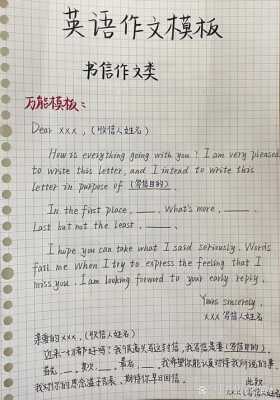 英语作文模板
书信作文类
万能模板：
Dear xxx，(收信人姓名)
How is everything going with you! I am very pleased
to write this letter, and I intend to write this
letter in purpose of (写信目的).
In the first place, ____. What's more, ____.
Last but not the least, ____.
I hope you can take what I said seriously. Words
fail me when I try to express the feeling that I
miss you. I am looking forward to your early reply.
Yours sincerely,
xxx 写信人姓名
亲爱的xxx，(收信人姓名)
近来一切都好吗？我很高兴写这封信，我写信是要(写信目的)，
首先，__，其次，__，最后，__，我希望你能认真对待我所说的事，
我对你的思念溢于言表，期待你早日回信。
此致
xxx(写信人姓名)